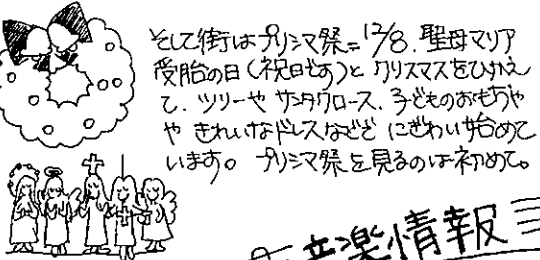 そして街はプリシマ祭=12/8.聖母マリア
受胎の日(祝日です)と クリスマスをひかえ
て、ツリーや サンタクロース、子どものおもちゃ
や きれいなドレスなどで にぎわい始めて
います。 プリシマ祭を見るのは初めて。
音楽情報